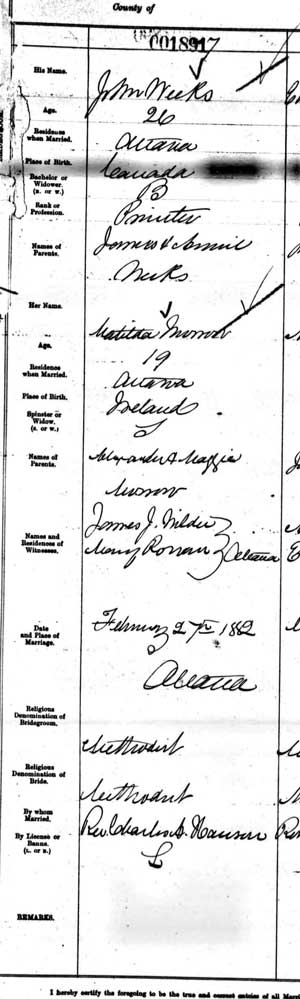 County of
0018917
His Name.
John Weeks
Age.
26
Residence when Married.
Ottawa
Place of Birth.
Canada
Bachelor or Widower. (B. or W.)
B
Rank or Profession.
Printer
Names of Parents.
James & Annie
Weeks
Her Name.
Matilda Morrow
Age.
19
Residence when Married.
Ottawa
Place of Birth.
Ireland
Spinster or Widow. (S. or W.)
S
Names of Parents.
Alexander & Maggie
Morrow
Names and Residences of Witnesses.
James J.
Mary Ottawa
Date and Place of Marriage.
February 27th 1882
Ottawa
Religious Denomination of Bridegroom.
Methodist
Religious Denomination of Bride.
Methodist
By whom Married.
Rev. Charles A.
By License or Banns. (L. or B.)
L
REMARKS.
I hereby certify the foregoing to be the true and correct entries of all